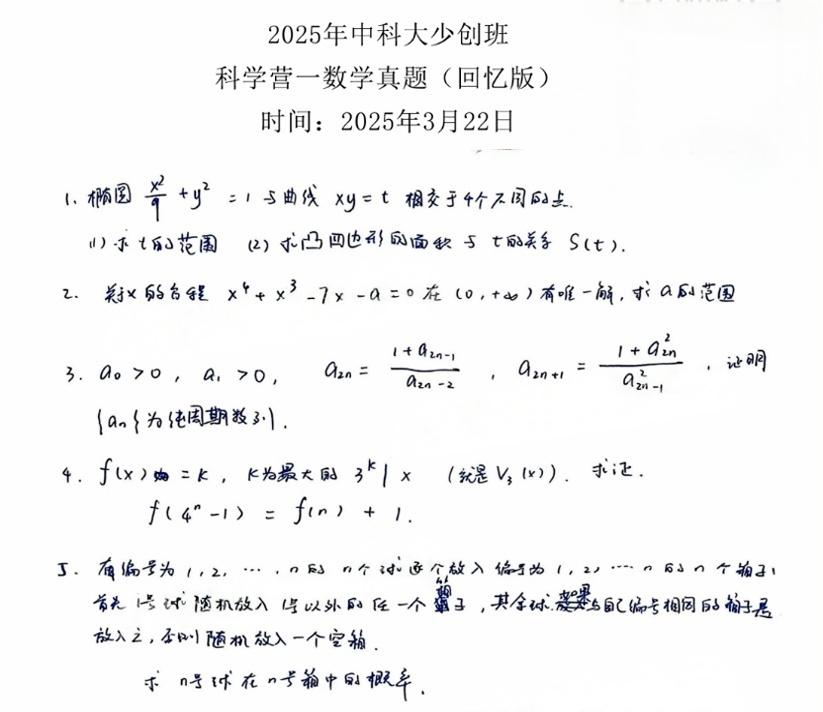 2025年中科大少创班
科学营一数学真题（回忆版）
时间：2025年3月22日
1. 椭圆 x²/9 + y² = 1 与曲线 xy = t 相交于4个不同的点.
(1) 求 t 的范围 (2) 求凸四边形的面积与 t 的关系 S(t).
2. 关于x的方程 x⁴ + x³ - 7x - a = 0 在 (0, +∞) 有唯一解, 求 a 的范围
3. a₀ > 0, a₁ > 0, a₂ₙ = (1 + a₂ₙ₋₁)/a₂ₙ₋₂, a₂ₙ₊₁ = (1 + a₂ₙ²)/a₂ₙ₋₁², 证明
{aₙ} 为纯周期数列.
4. f(x) = k, k为最大的 3ᵏ | x (就是 V₃(x)). 求证.
f(4ⁿ - 1) = f(n) + 1.
5. 有编号为 1, 2, …, n 的 n 个球逐个放入编号为 1, 2, … n 的 n 个箱子,
首先 1号球随机放入 1号以外的任一个箱子, 其余球与自己编号相同的箱子是
放入之, 否则随机放入一个空箱.
求 n号球在n号箱中的概率.